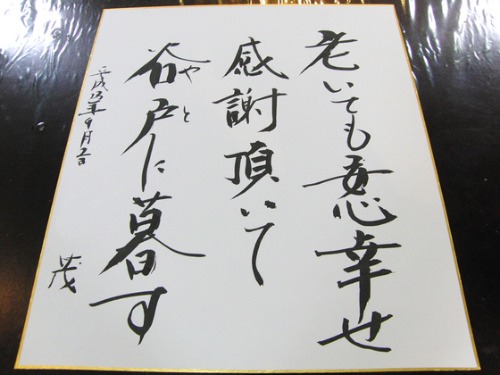 老いても吾心幸せ
感謝頂いて
谷戸に暮す
やと
平成13年9月吉日
茂